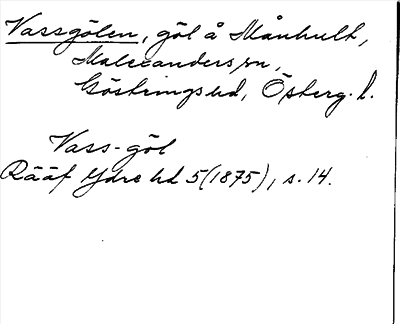 Vassgölen, göl å Månhult,
Malexanders sn,
Göstrings hd, Österg. l.
Vass-göl
Rääf Ydre hd 5(1875), s. 14.